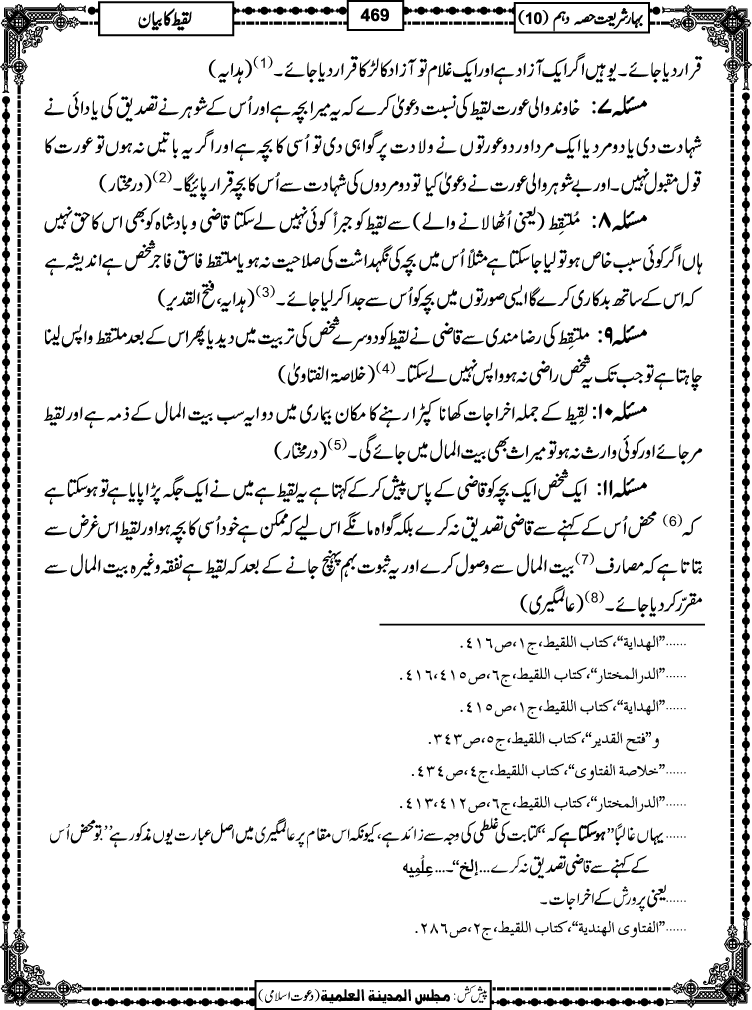 بہارِ شریعت حصہ دہم (10)
469
لقیط کا بیان
قرار دیا جائے۔ یوہیں اگر ایک آزاد ہے اور ایک غلام تو آزاد کا لڑکا قرار دیا جائے۔(1) (ہدایہ)
مسئلہ ۷: خاوند والی عورت لقیط کی نسبت دعویٰ کرے کہ یہ میرا بچہ ہے اور اُس کے شوہر نے تصدیق کی یا دائی نے
شہادت دی یا دو مرد یا ایک مرد اور دو عورتوں نے ولادت پر گواہی دی تو اُسی کا بچہ ہے اور اگر یہ باتیں نہ ہوں تو عورت کا
قول مقبول نہیں۔ اور بے شوہر والی عورت نے دعویٰ کیا تو دو مردوں کی شہادت سے اُس کا بچہ قرار پائیگا۔(2) (درمختار)
مسئلہ ۸: مُلتقِط (یعنی اُٹھا لانے والے) سے لقیط کو جبراً کوئی نہیں لے سکتا قاضی و بادشاہ کو بھی اس کا حق نہیں
ہاں اگر کوئی سبب خاص ہو تو لیا جا سکتا ہے مثلاً اُس میں بچہ کی نگہداشت کی صلاحیت نہ ہو یا ملتقط فاسق فاجر شخص ہے اندیشہ ہے
کہ اس کے ساتھ بدکاری کرے گا ایسی صورتوں میں بچہ کو اُس سے جدا کر لیا جائے۔(3) (ہدایہ، فتح القدیر)
مسئلہ ۹: ملتقِط کی رضامندی سے قاضی نے لقیط کو دوسرے شخص کی تربیت میں دیدیا پھر اس کے بعد ملتقط واپس لینا
چاہتا ہے تو جب تک یہ شخص راضی نہ ہو واپس نہیں لے سکتا۔(4) (خلاصۃ الفتاویٰ)
مسئلہ ۱۰: لقِیط کے جملہ اخراجات کھانا کپڑا رہنے کا مکان بیماری میں دوا یہ سب بیت المال کے ذمہ ہے اور لقیط
مر جائے اور کوئی وارث نہ ہو تو میراث بھی بیت المال میں جائے گی۔(5) (درمختار)
مسئلہ ۱۱: ایک شخص ایک بچہ کو قاضی کے پاس پیش کر کے کہتا ہے یہ لقیط ہے میں نے ایک جگہ پڑا پایا ہے تو ہوسکتا ہے
کہ(6) محض اُس کے کہنے سے قاضی تصدیق نہ کرے بلکہ گواہ مانگے اس لیے کہ ممکن ہے خود اُسی کا بچہ ہو اور لقیط اس غرض سے
بتاتا ہے کہ مصارف(7) بیت المال سے وصول کرے اور یہ ثبوت بہم پہنچ جانے کے بعد کہ لقیط ہے نفقہ وغیرہ بیت المال سے
مقرر کر دیا جائے۔(8) (عالمگیری)
......"الهداية"، كتاب اللقيط، ج١، ص٤١٦.
......"الدرالمختار"، كتاب اللقيط، ج٦، ص٤١٥، ٤١٦.
......"الهداية"، كتاب اللقيط، ج١، ص٤١٥.
و"فتح القدير"، كتاب اللقيط، ج٥، ص٣٤٣.
......"خلاصة الفتاوى"، كتاب اللقيط، ج٤، ص٤٣٤.
......"الدرالمختار"، كتاب اللقيط، ج٦، ص٤١٢، ٤١٣.
......یہاں غالباً "ہوسکتا ہے کہ" کتابت کی غلطی کی وجہ سے زائد ہے، کیونکہ اس مقام پر عالمگیری میں اصل عبارت یوں مذکور ہے" تو محض اُس
کے کہنے سے قاضی تصدیق نہ کرے... إلخ"۔... عِلْمِیہ
......یعنی پرورش کے اخراجات۔
......"الفتاوى الهندية"، كتاب اللقيط، ج٢، ص٢٨٦.
پیش کش: مجلس المدینة العلمیة (دعوت اسلامی)